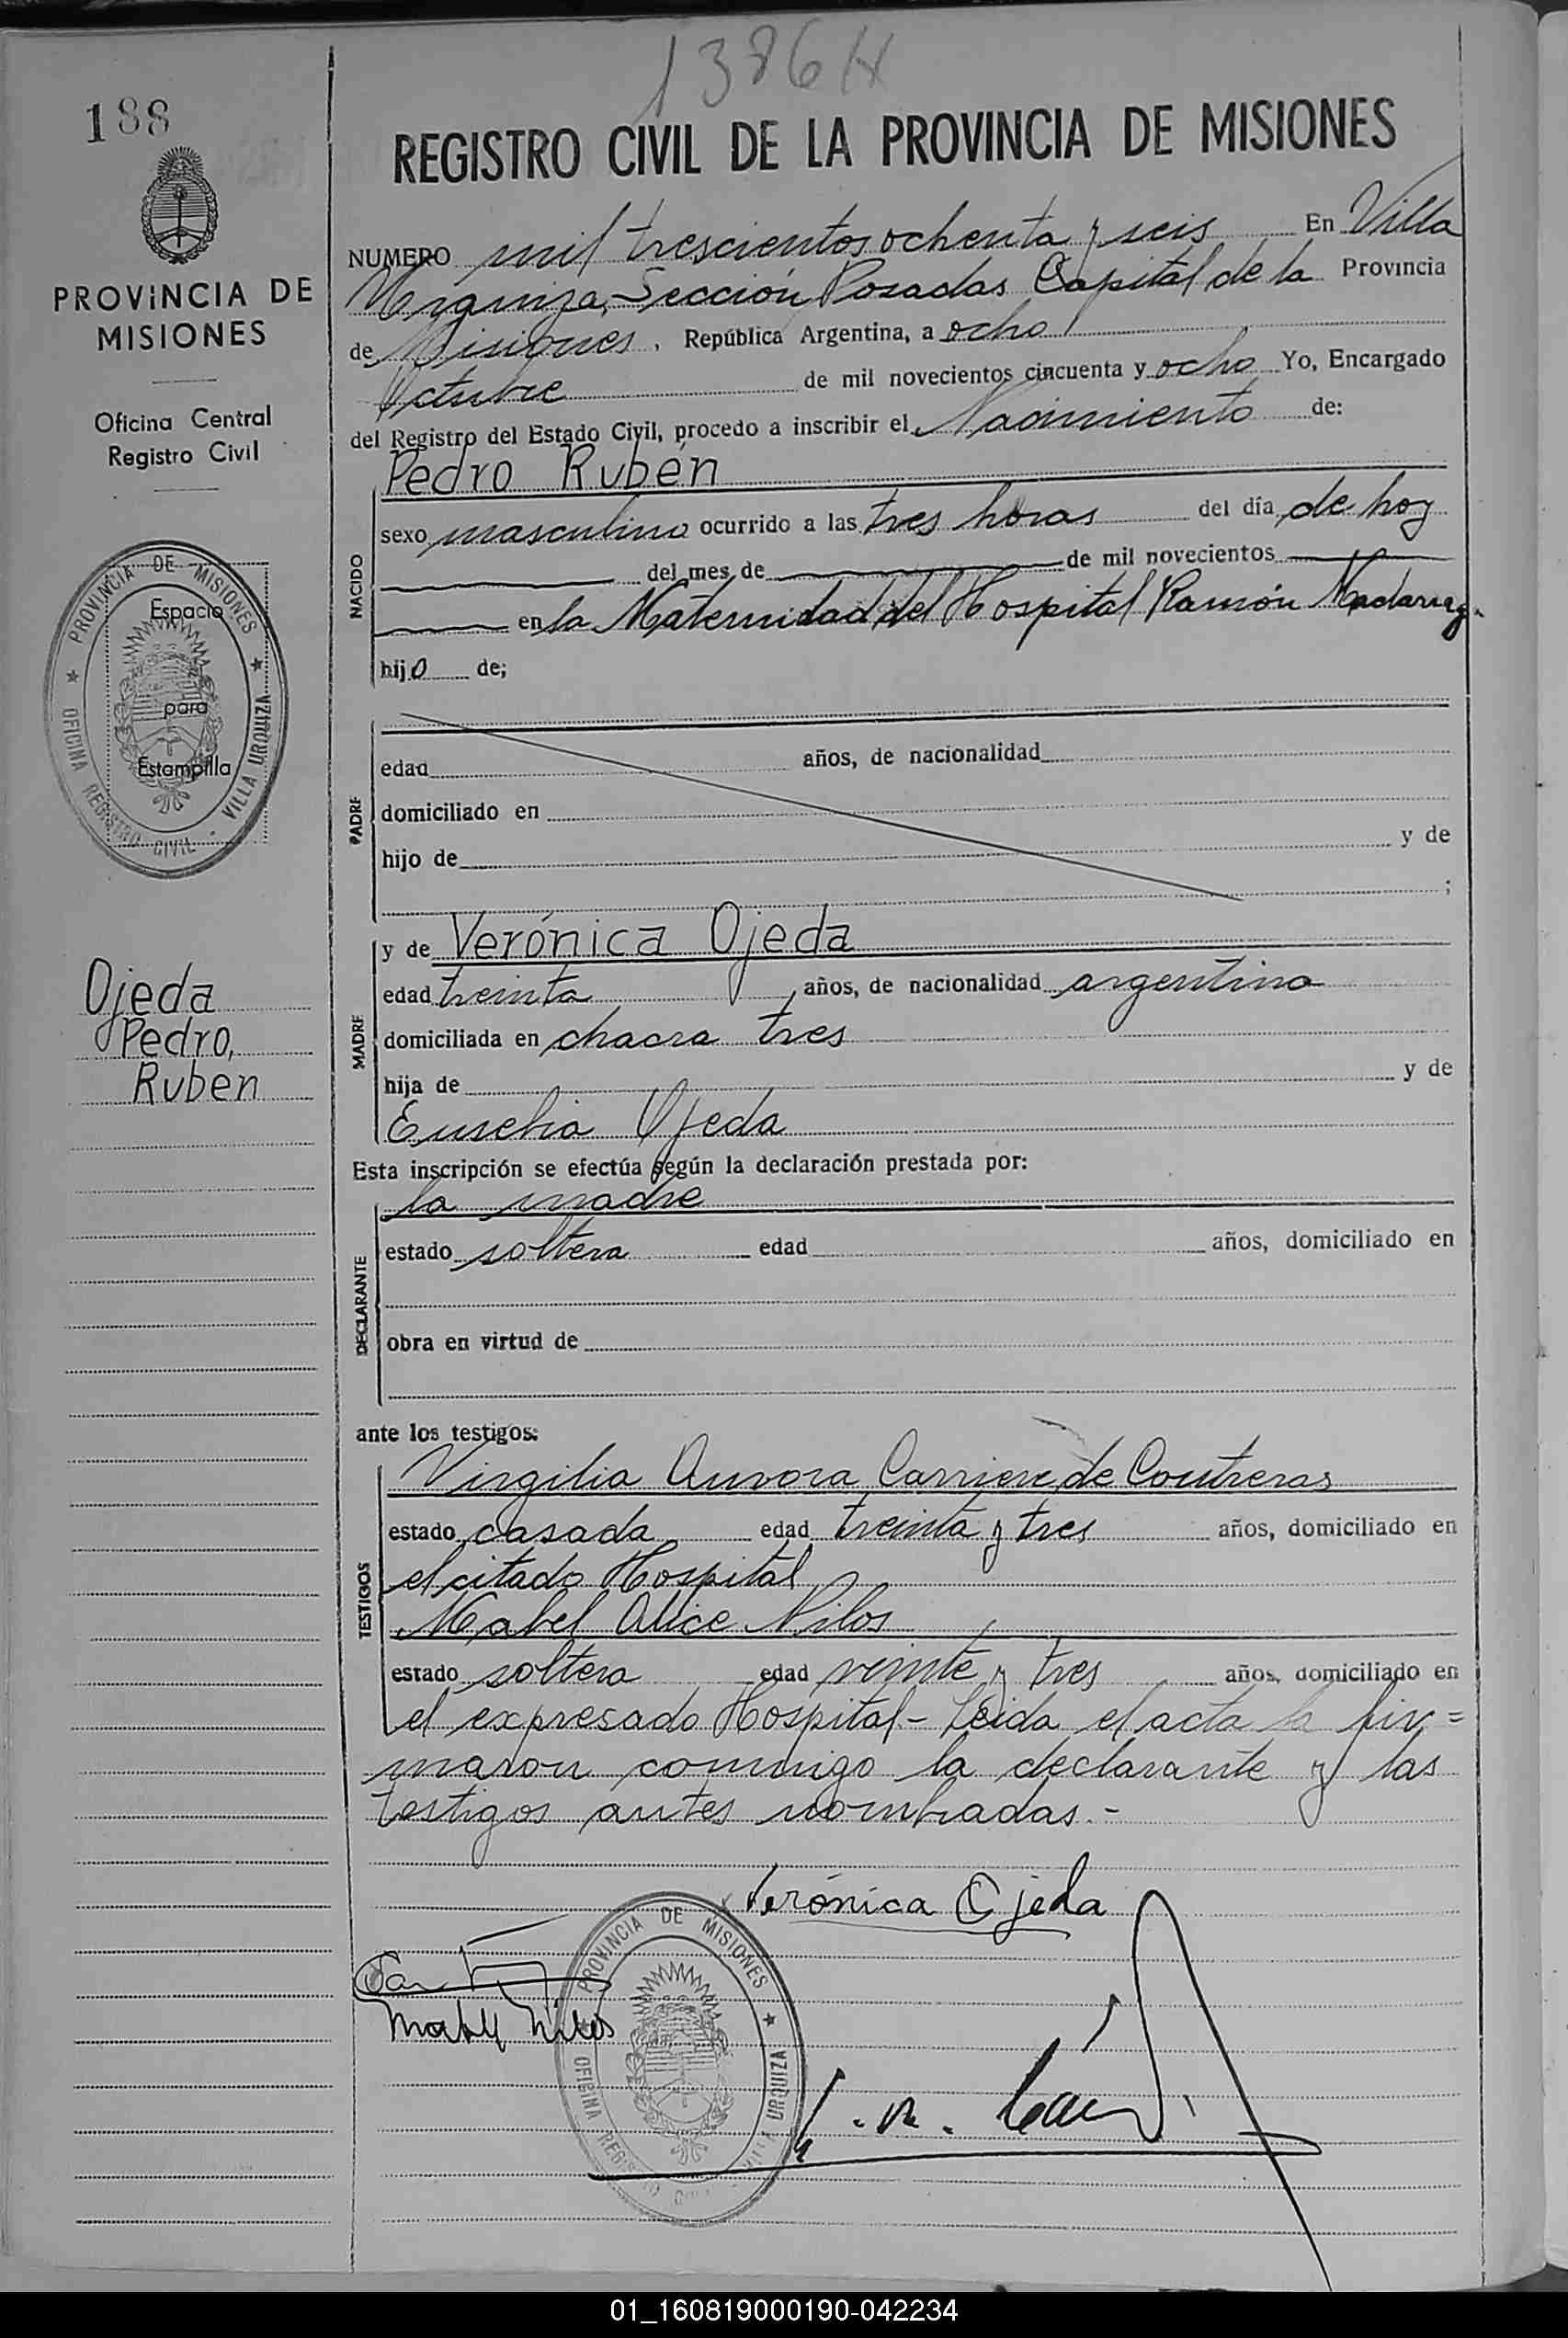 1386 H
188
REGISTRO CIVIL DE LA PROVINCIA DE MISIONES
NUMERO mil trescientos ochenta y seis En Villa
Urquiza, Sección Posadas Capital de la Provincia
de Misiones, República Argentina, a ocho
Octubre de mil novecientos cincuenta y ocho Yo, Encargado
del Registro del Estado Civil, procedo a inscribir el Nacimiento de:
Pedro Rubén
NACIDO
sexo masculino ocurrido a las tres horas del día de hoy
del mes de de mil novecientos
en la Maternidad del Hospital Ramón Madariaga
hijo de;
PADRE
edad años, de nacionalidad
domiciliado en
hijo de y de
;
MADRE
y de Verónica Ojeda
edad treinta años, de nacionalidad argentina
domiciliada en chacra tres
hija de y de
Eusebia Ojeda
Esta inscripción se efectúa según la declaración prestada por:
la madre
DECLARANTE
estado soltera edad años, domiciliado en
obra en virtud de
ante los testigos:
Virgilia Aurora Carriere de Contreras
TESTIGOS
estado casada edad treinta y tres años, domiciliado en
el citado Hospital
Mabel Alice Nilos
estado soltera edad veinte y tres años, domiciliado en
el expresado Hospital - Leida el acta la fir=
maron conmigo la declarante y las
testigos antes nombradas.-
Verónica Ojeda
PROVINCIA DE MISIONES
OFICINA REGISTRO CIVIL - VILLA URQUIZA
PROVINCIA DE
MISIONES
Oficina Central
Registro Civil
PROVINCIA DE MISIONES
OFICINA REGISTRO CIVIL - VILLA URQUIZA
Espacio
para
Estampilla
Ojeda
Pedro,
Ruben
01_160819000190-042234